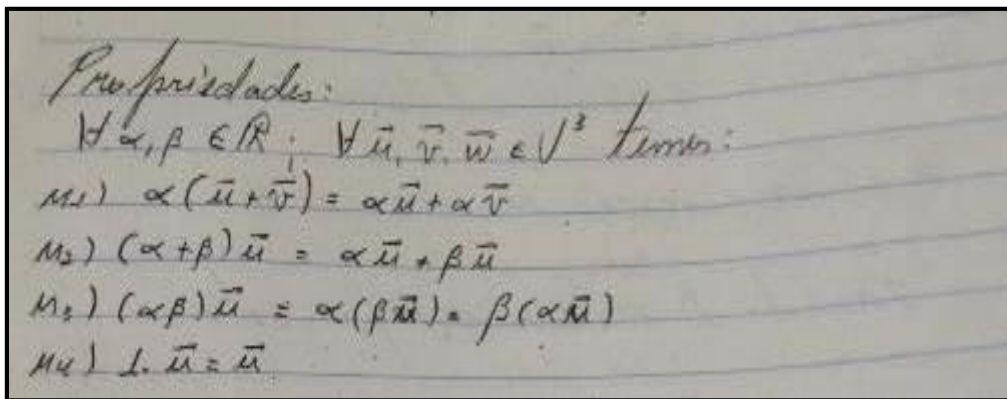 Propriedades:
∀ α, β ∈ ℝ; ∀ u⃗, v⃗, w⃗ ∈ V³ temos:
M₁) α(u⃗ + v⃗) = αu⃗ + αv⃗
M₂) (α + β)u⃗ = αu⃗ + βu⃗
M₃) (αβ)u⃗ = α(βu⃗) = β(αu⃗)
M₄) 1. u⃗ = u⃗